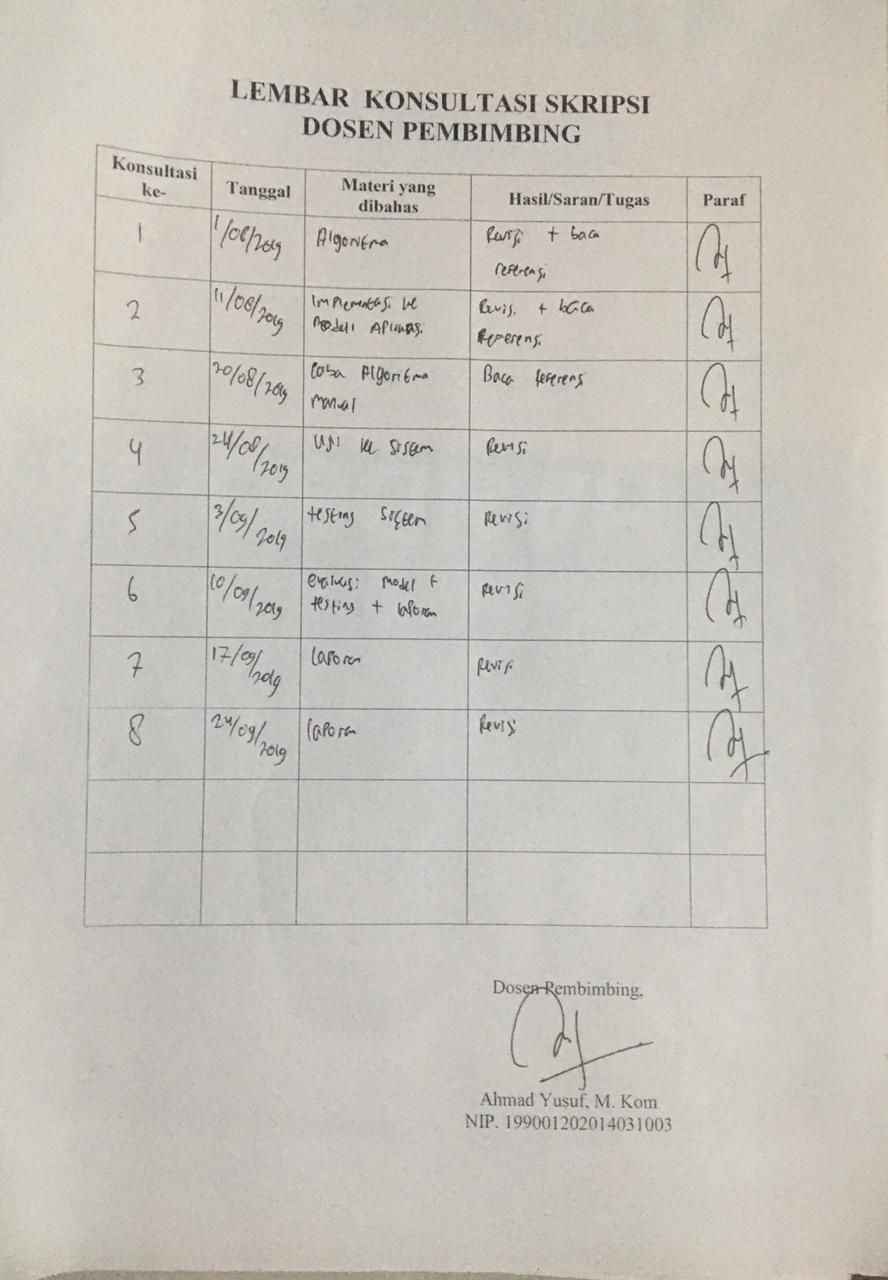 LEMBAR KONSULTASI SKRIPSI
DOSEN PEMBIMBING
Konsultasi ke- Tanggal Materi yang dibahas Hasil/Saran/Tugas Paraf
1 1/08/2019 Algoritma Revisi + baca
referensi
2 11/08/2019 Implementasi ke Revisi + baca
Model Aplikasi Referensi
3 20/08/2019 Coba Algoritma Baca Referensi
manual
4 24/08/2019 Uji ke Sistem Revisi
5 3/09/2019 testing Sistem Revisi
6 10/09/2019 evaluasi model &
testing + laporan Revisi
7 17/09/2019 Laporan Revisi
8 24/09/2019 Laporan Revisi
Dosen Pembimbing,
Ahmad Yusuf, M. Kom
NIP. 199001202014031003